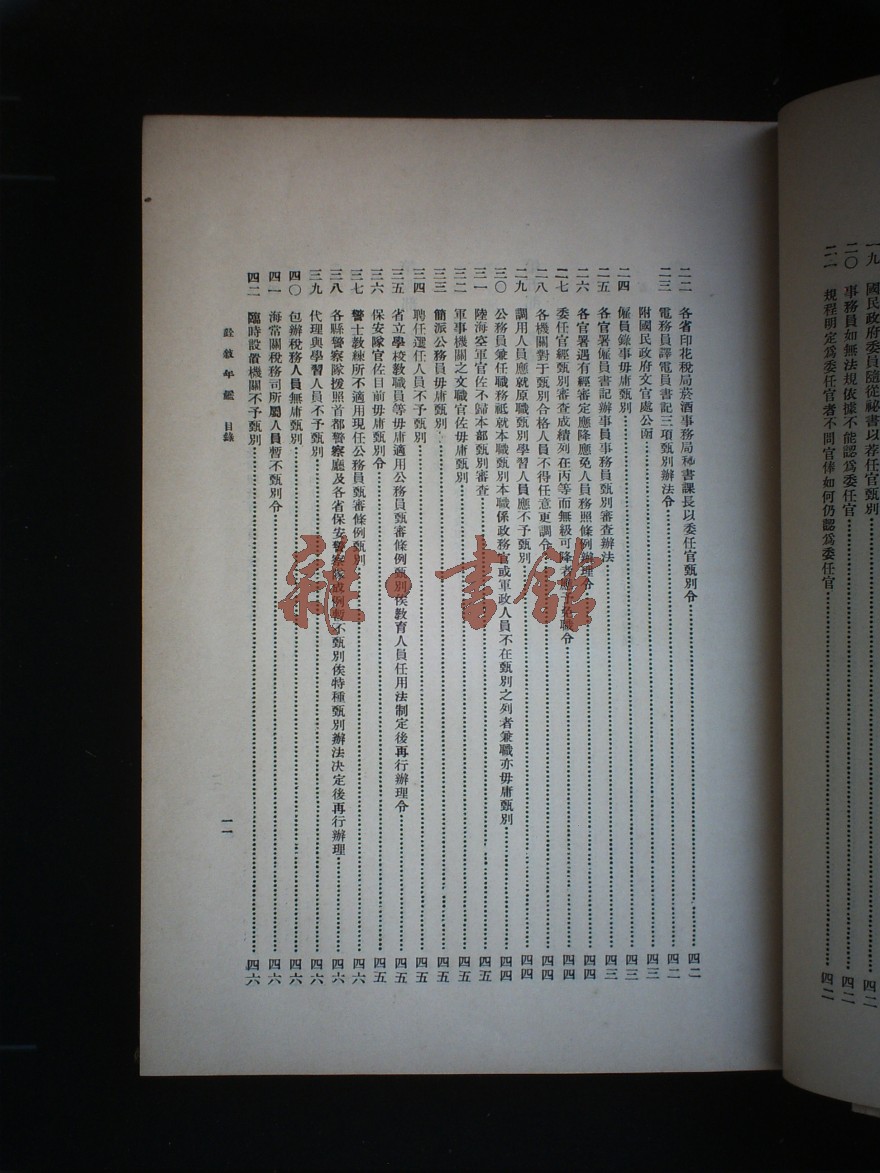 一九 國民政府委員隨從祕書以荐任官甄別……四二
二〇 事務員如無法規依據不能認爲委任官……四二
二一 規程明定爲委任官者不問官俸如何仍認爲委任官……四二
二二 各省印花稅局菸酒事務局秘書課長以委任官甄別令……四二
二三 電務員譯電員書記三項甄別辦法令……四二
附國民政府文官處公函……四三
二四 僱員錄事毋庸甄別……四三
二五 各官署僱員書記辦事員事務員甄別審查辦法……四三
二六 各官署遇有經審定應降應免人員務照條例辦理令……四四
二七 委任官經甄別審查成績列在丙等而無級可降者應予免職令……四四
二八 各機關對于甄別合格人員不得任意更調令……四四
二九 調用人員應就原職甄別學習人員應不予甄別……四四
三〇 公務員兼任職務祗就本職甄別本職係政務官或軍政人員不在甄別之列者兼職亦毋庸甄別……四四
三一 陸海空軍官佐不歸本部甄別審查……四五
三二 軍事機關之文職官佐毋庸甄別……四五
三三 簡派公務員毋庸甄別……四五
三四 聘任選任人員不予甄別……四五
三五 省立學校教職員等毋庸適用公務員甄審條例甄別俟教育人員任用法制定後再行辦理令……四五
三六 保安隊官佐目前毋庸甄別令……四五
三七 警士教練所不適用現任公務員甄審條例甄別……四六
三八 各縣警察隊援照首都警察廳及各省保安警察隊成例暫不甄別俟特種甄別辦法決定後再行辦理……四六
三九 代理與學習人員不予甄別……四六
四〇 包辦稅務人員無庸甄別……四六
四一 海常關稅務司所屬人員暫不甄別令……四六
四二 臨時設置機關不予甄別……四六
銓敍年鑑 目錄 一一
雜·書館